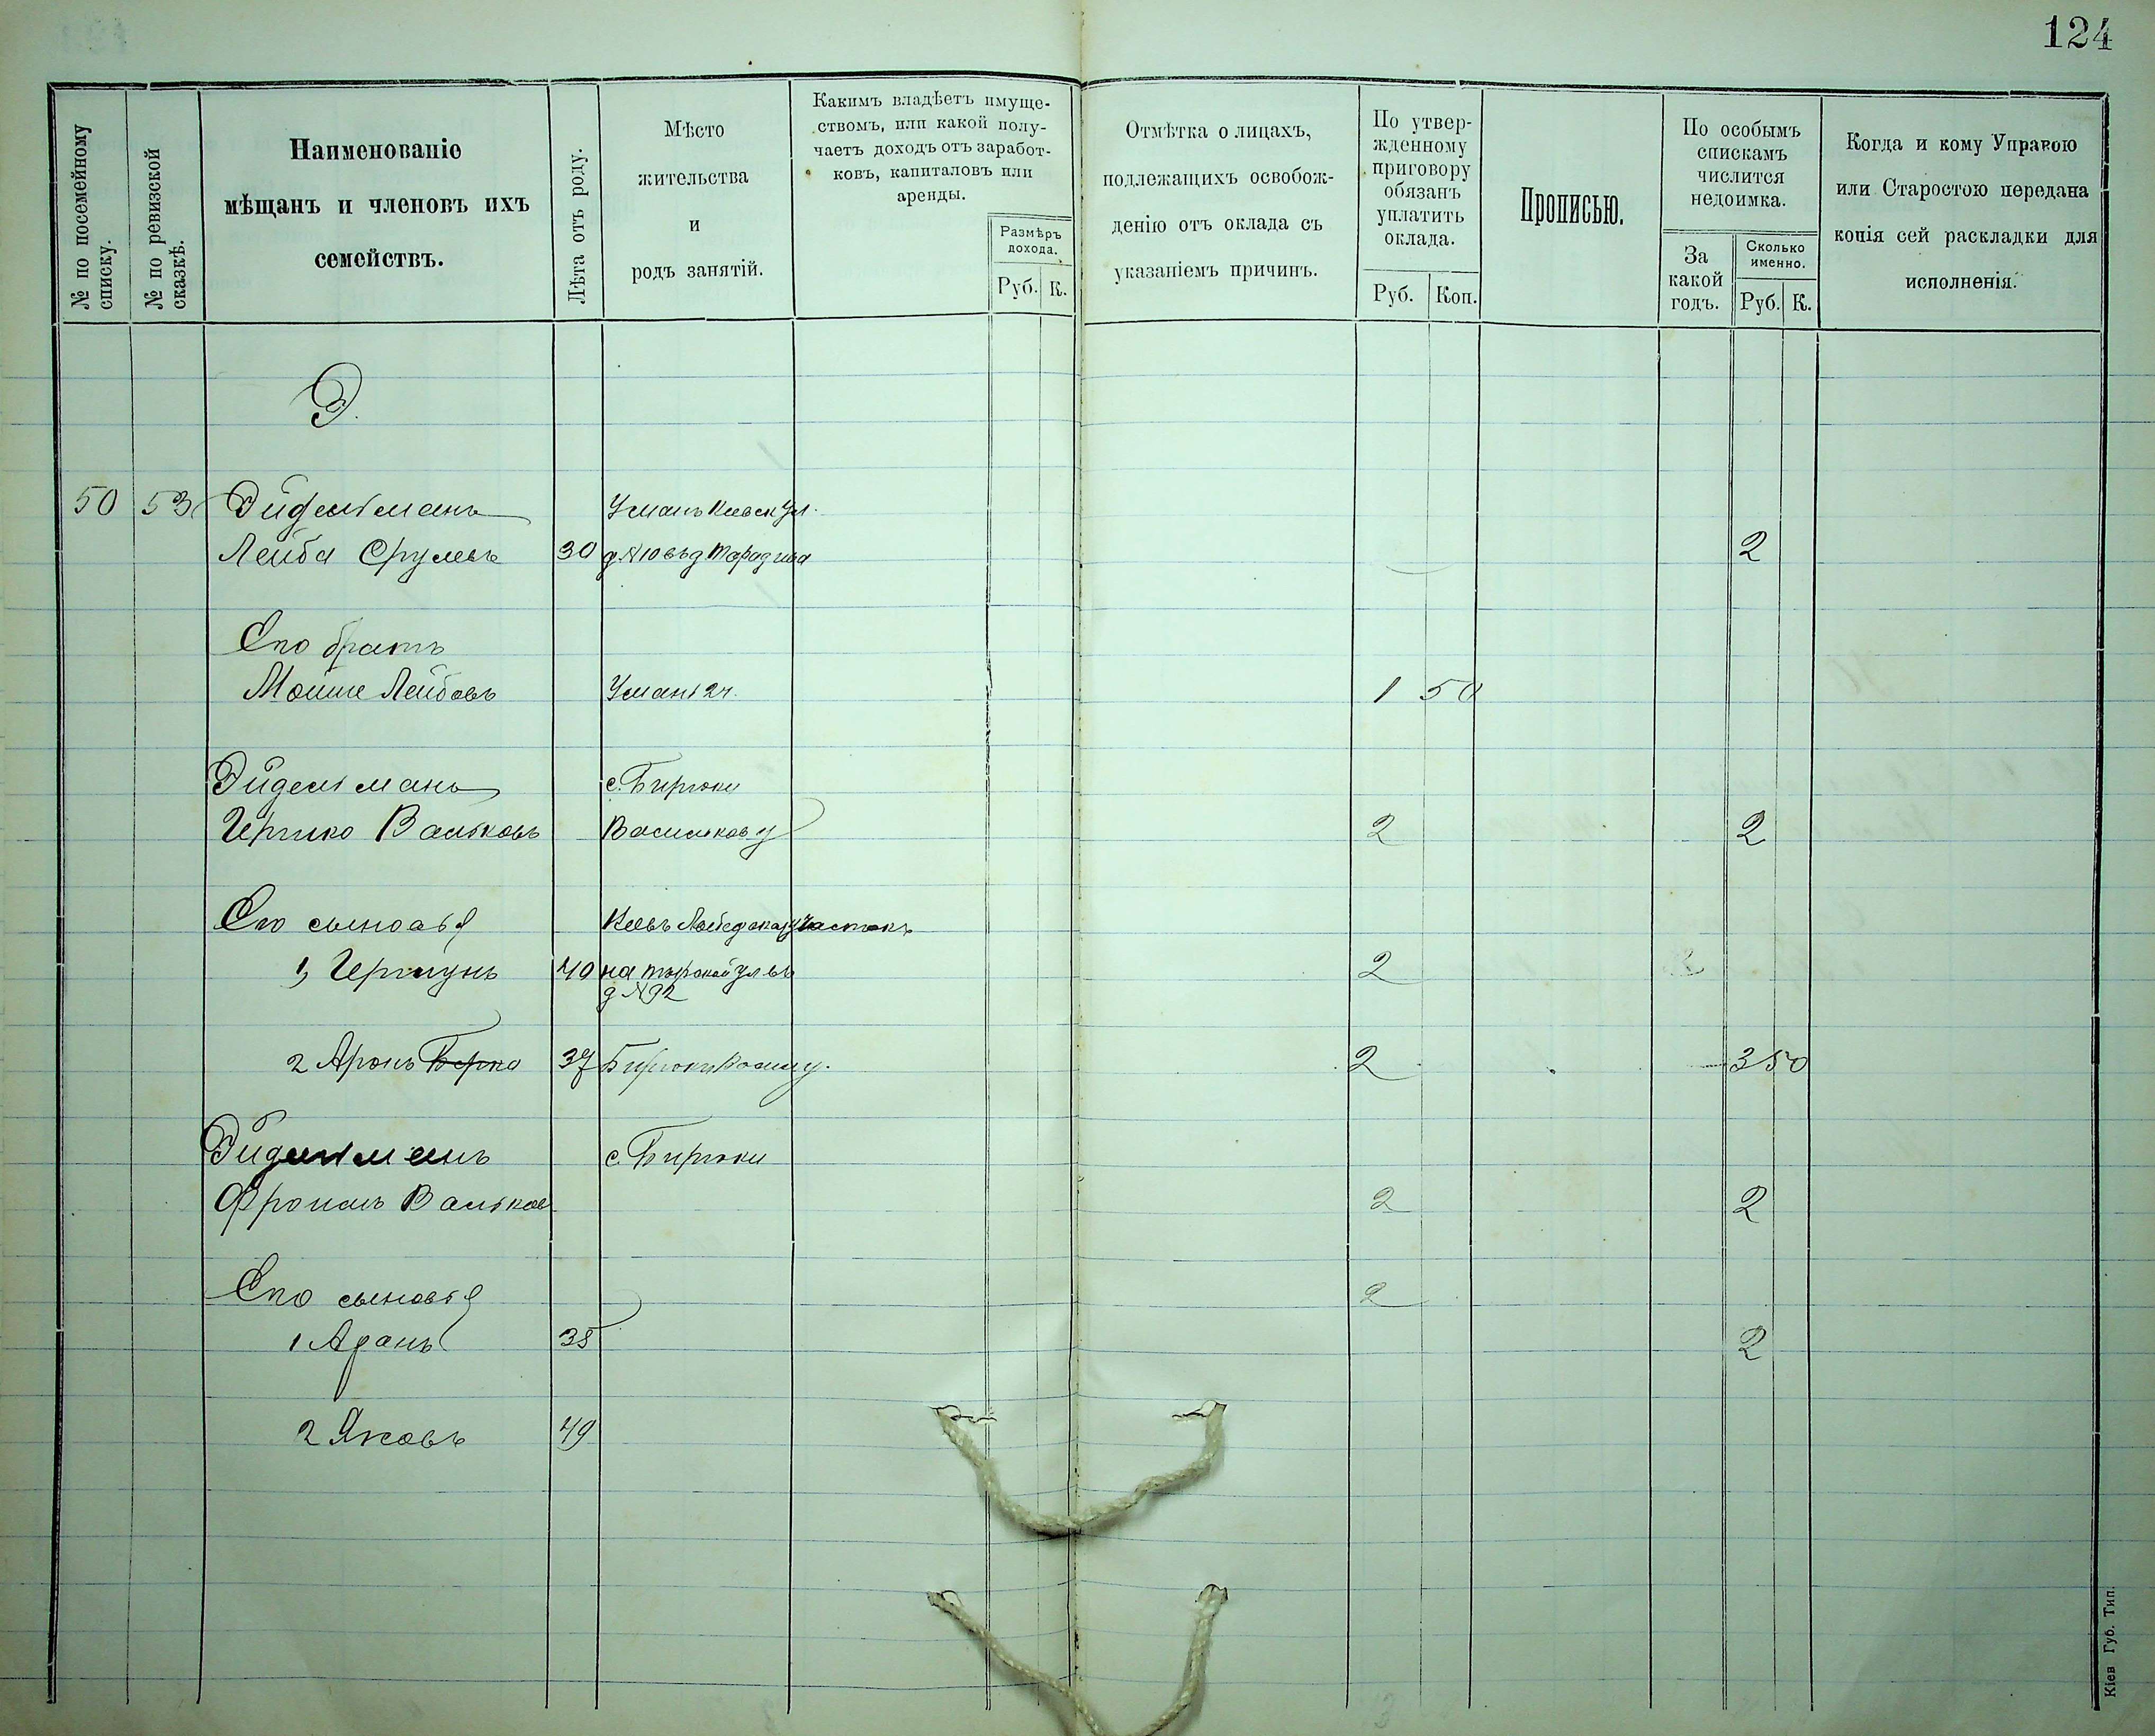 124
№ по посемейному списку.
№ по ревизской сказкѣ.
Наименованіе
мѣщанъ и членовъ ихъ
семействъ.
Лѣта отъ роду.
Мѣсто
жительства
и
родъ занятій.
Какимъ владѣетъ имуще-
ствомъ, или какой полу-
чаетъ доходъ отъ заработ-
ковъ, капиталовъ или
аренды.
Размѣръ
дохода.
Руб. К.
Отмѣтка о лицахъ,
подлежащихъ освобож-
денію отъ оклада съ
указаніемъ причинъ.
По утвер-
жденному
приговору
обязанъ
уплатить
оклада.
Руб. Коп.
Прописью.
По особымъ
спискамъ
числится
недоимка.
За
какой
годъ.
Сколько
именно.
Руб. К.
Когда и кому Управою
или Старостою передана
копія сей раскладки для
исполненія.
Э.
50 53 Эйдельманъ Умань Киевск ул.
Лейба Срулевъ 30 д №10 2
Его братъ
Мошше Лейбовъ Умань 2 ч. 1 50
Эйдельманъ с. Бирюки
Гершко Вольковъ Васильков у 2 2
Его сыновья Киевъ участокъ
1, Гершунъ 40 2
д №92
2 Аронъ Берко 37 Бирюки Васил у. 2 3 50
Эйдельманъ с. Бирюки
Фроимъ Вольков 2 2
Его сыновья 2
1 35 2
2 Яковъ 49
Кіев Губ. Тип.